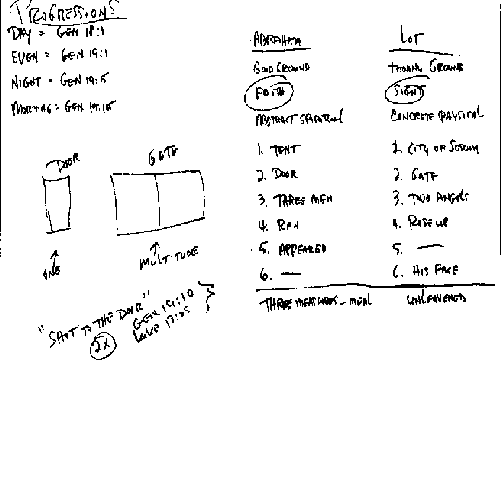 PROGRESSIONS
DAY = GEN 18:1
EVEN = GEN 19:1
NIGHT = GEN 19:5
MORNING = GEN 19:15
DOOR
GATE
ONE
MULTITUDE
"SHUT TO THE DOOR"
2X
GEN 19:10
LUKE 13:25
ABRAHAM
GOOD GROUND
FAITH
ABSTRACT SPIRITUAL
1. TENT
2. DOOR
3. THREE MEN
4. RAN
5. APPEARED
6. —
THREE MEASURES - MEAL
LOT
THORNY GROUND
SIGHT
CONCRETE PHYSICAL
1. CITY OF SODOM
2. GATE
3. TWO ANGELS
4. ROSE UP
5. —
6. HIS FACE
UNLEAVENED